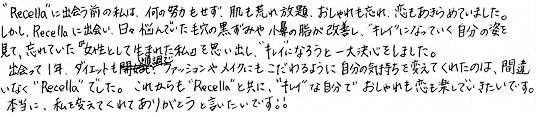 "Recella"に出会う前の私は、何の努力もせず、肌も荒れ放題、おしゃれも忘れ、恋もあきらめていました。
しかし、Recellaに出会い、日々悩んでいた毛穴の黒ずみや小鼻の脂が改善し、"キレイ"になっていく自分の姿を
見て、忘れていた『女性として生まれた私』を思い出し、"キレイ"になろうと一大決心をしました。
出会って1年、ダイエットも、ファッションやメイクにもこだわるように自分の気持ちを変えてくれたのは、間違
いなく"Recella"でした。これからも"Recella"と共に、"キレイ"な自分でおしゃれも恋も楽しでいきたいです。
本当に、私を変えてくれてありがとうと言いたいです!!